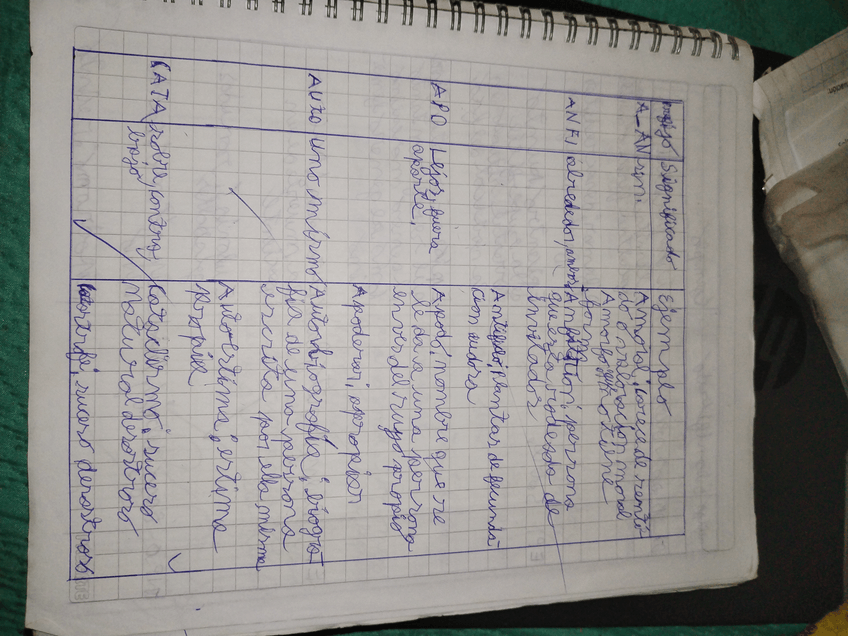 Prefijo Significado Ejemplo
A-AN sin.
Amoral; Carece de senti-
do o valoracion moral
Amorfo; que no tiene
forma
ANFI alrededor, ambos
Anfitrion; persona
que esta rodeada de
invitados
plantas de fecunda-
cion
APO Lejos, fuera
aparte,
Apodo; nombre que se
le da a una persona
en vez de suyo propio
Apoderar; apropiar
AUTO Uno mismo
Autobiografia; biogra-
fia de una persona
escrita por ella misma
Autoestima; estima
propia
CATA sobre, contra,
bajo
Cataclismo; suceso
natural desastroso
suceso desastroso